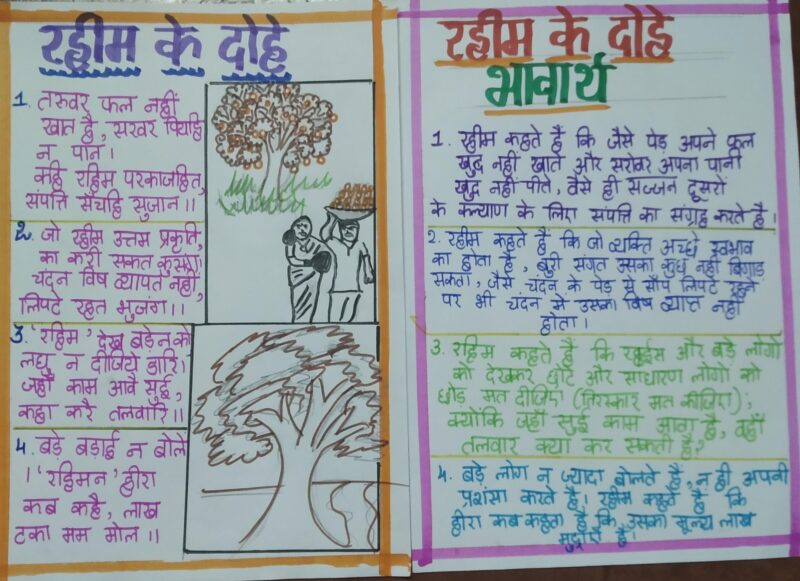 रहीम के दोहे
1. तरुवर फल नहीं
खात है, सरवर पियहि
न पान।
कहि रहिम परकाजहित,
संपत्ति सँचहि सुजान।।
2. जो रहीम उत्तम प्रकृति,
का करी सकत कुसंग।
चंदन विष व्यापत नहीं,
लिपटे रहत भुजंग।।
3. 'रहिम' देख बड़ेन को
लघु न दीजिये डारि।
जहाँ काम आवै सुई,
कहा करै तलवारि।।
4. बड़े बड़ाई न बोले
। 'रहिमन' हीरा
कब कहै, लाख
टका मम मोल।।
रहीम के दोहे
भावार्थ
1. रहीम कहते है कि जैसे पेड़ अपने फल
खुद नहीं खाते और सरोवर अपना पानी
खुद नहीं पीते, वैसे ही सज्जन दूसरों
के कल्याण के लिए संपत्ति का संग्रह करते है।
2. रहीम कहते हैं कि जो व्यक्ति अच्छे स्वभाव
का होता है, बुरी संगत उसका कुछ नहीं बिगाड़
सकता, जैसे चंदन के पेड़ से साँप लिपटे रहने
पर भी चंदन में उसका विष व्याप्त नहीं
होता।
3. रहिम कहते हैं कि रईस और बड़े लोगो
को देखकर छोटे और साधारण लोगों को
छोड़ मत दीजिए (तिरस्कार मत कीजिए);
क्योंकि जहाँ सुई काम आता है, वहाँ
तलवार क्या कर सकती है?
4. बड़े लोग न ज्यादा बोलते है, न ही अपनी
प्रशंसा करते है। रहीम कहते है कि
हीरा कब कहता है कि, उसका मूल्य लाख
मुद्राएँ है।